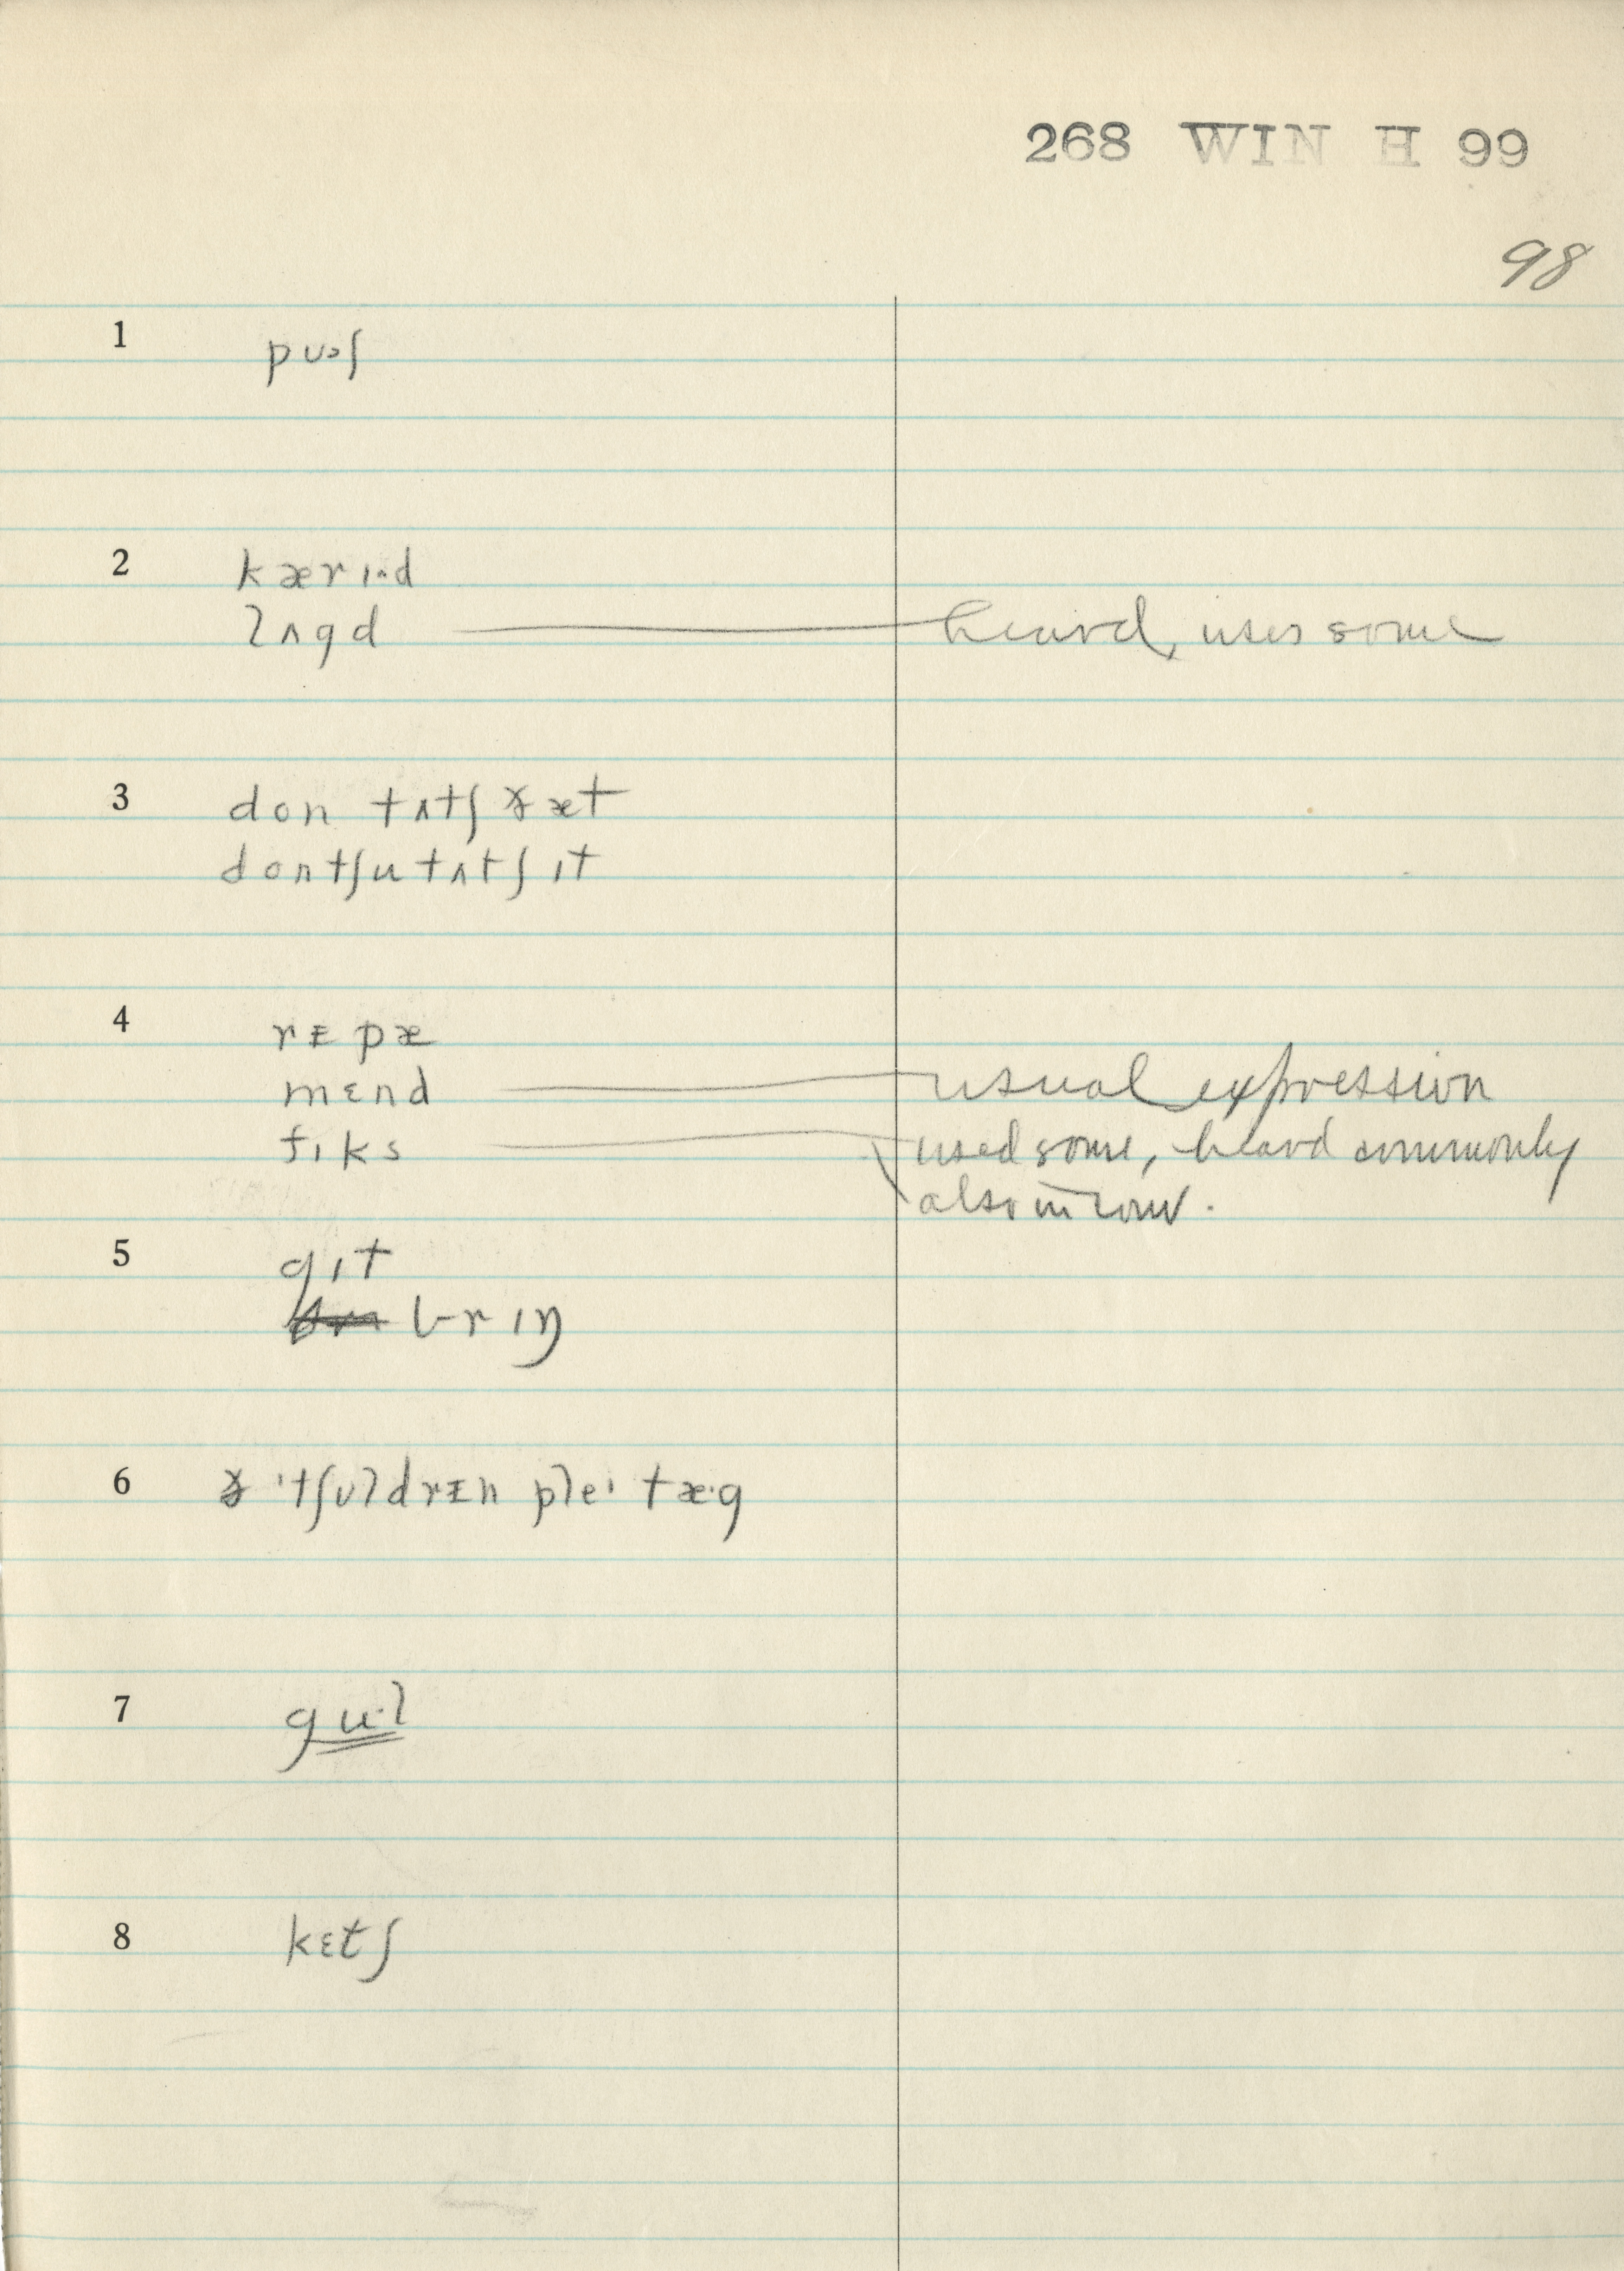 268 WIN H 99
98
1 pʊəʃ
2 kærɪˑd
lʌgd heard, uses some
3 don tʌtʃ ðæt
dontʃu tʌtʃ ɪt
4 rᵻpæ
mɛnd usual expression
fɪks used some, heard commonly
also in conv.
5 gɪt
brɪŋ
6 ðɪ tʃʊldrᵻn pleɪ tæˑg
7 guˑl
8 kɛtʃ